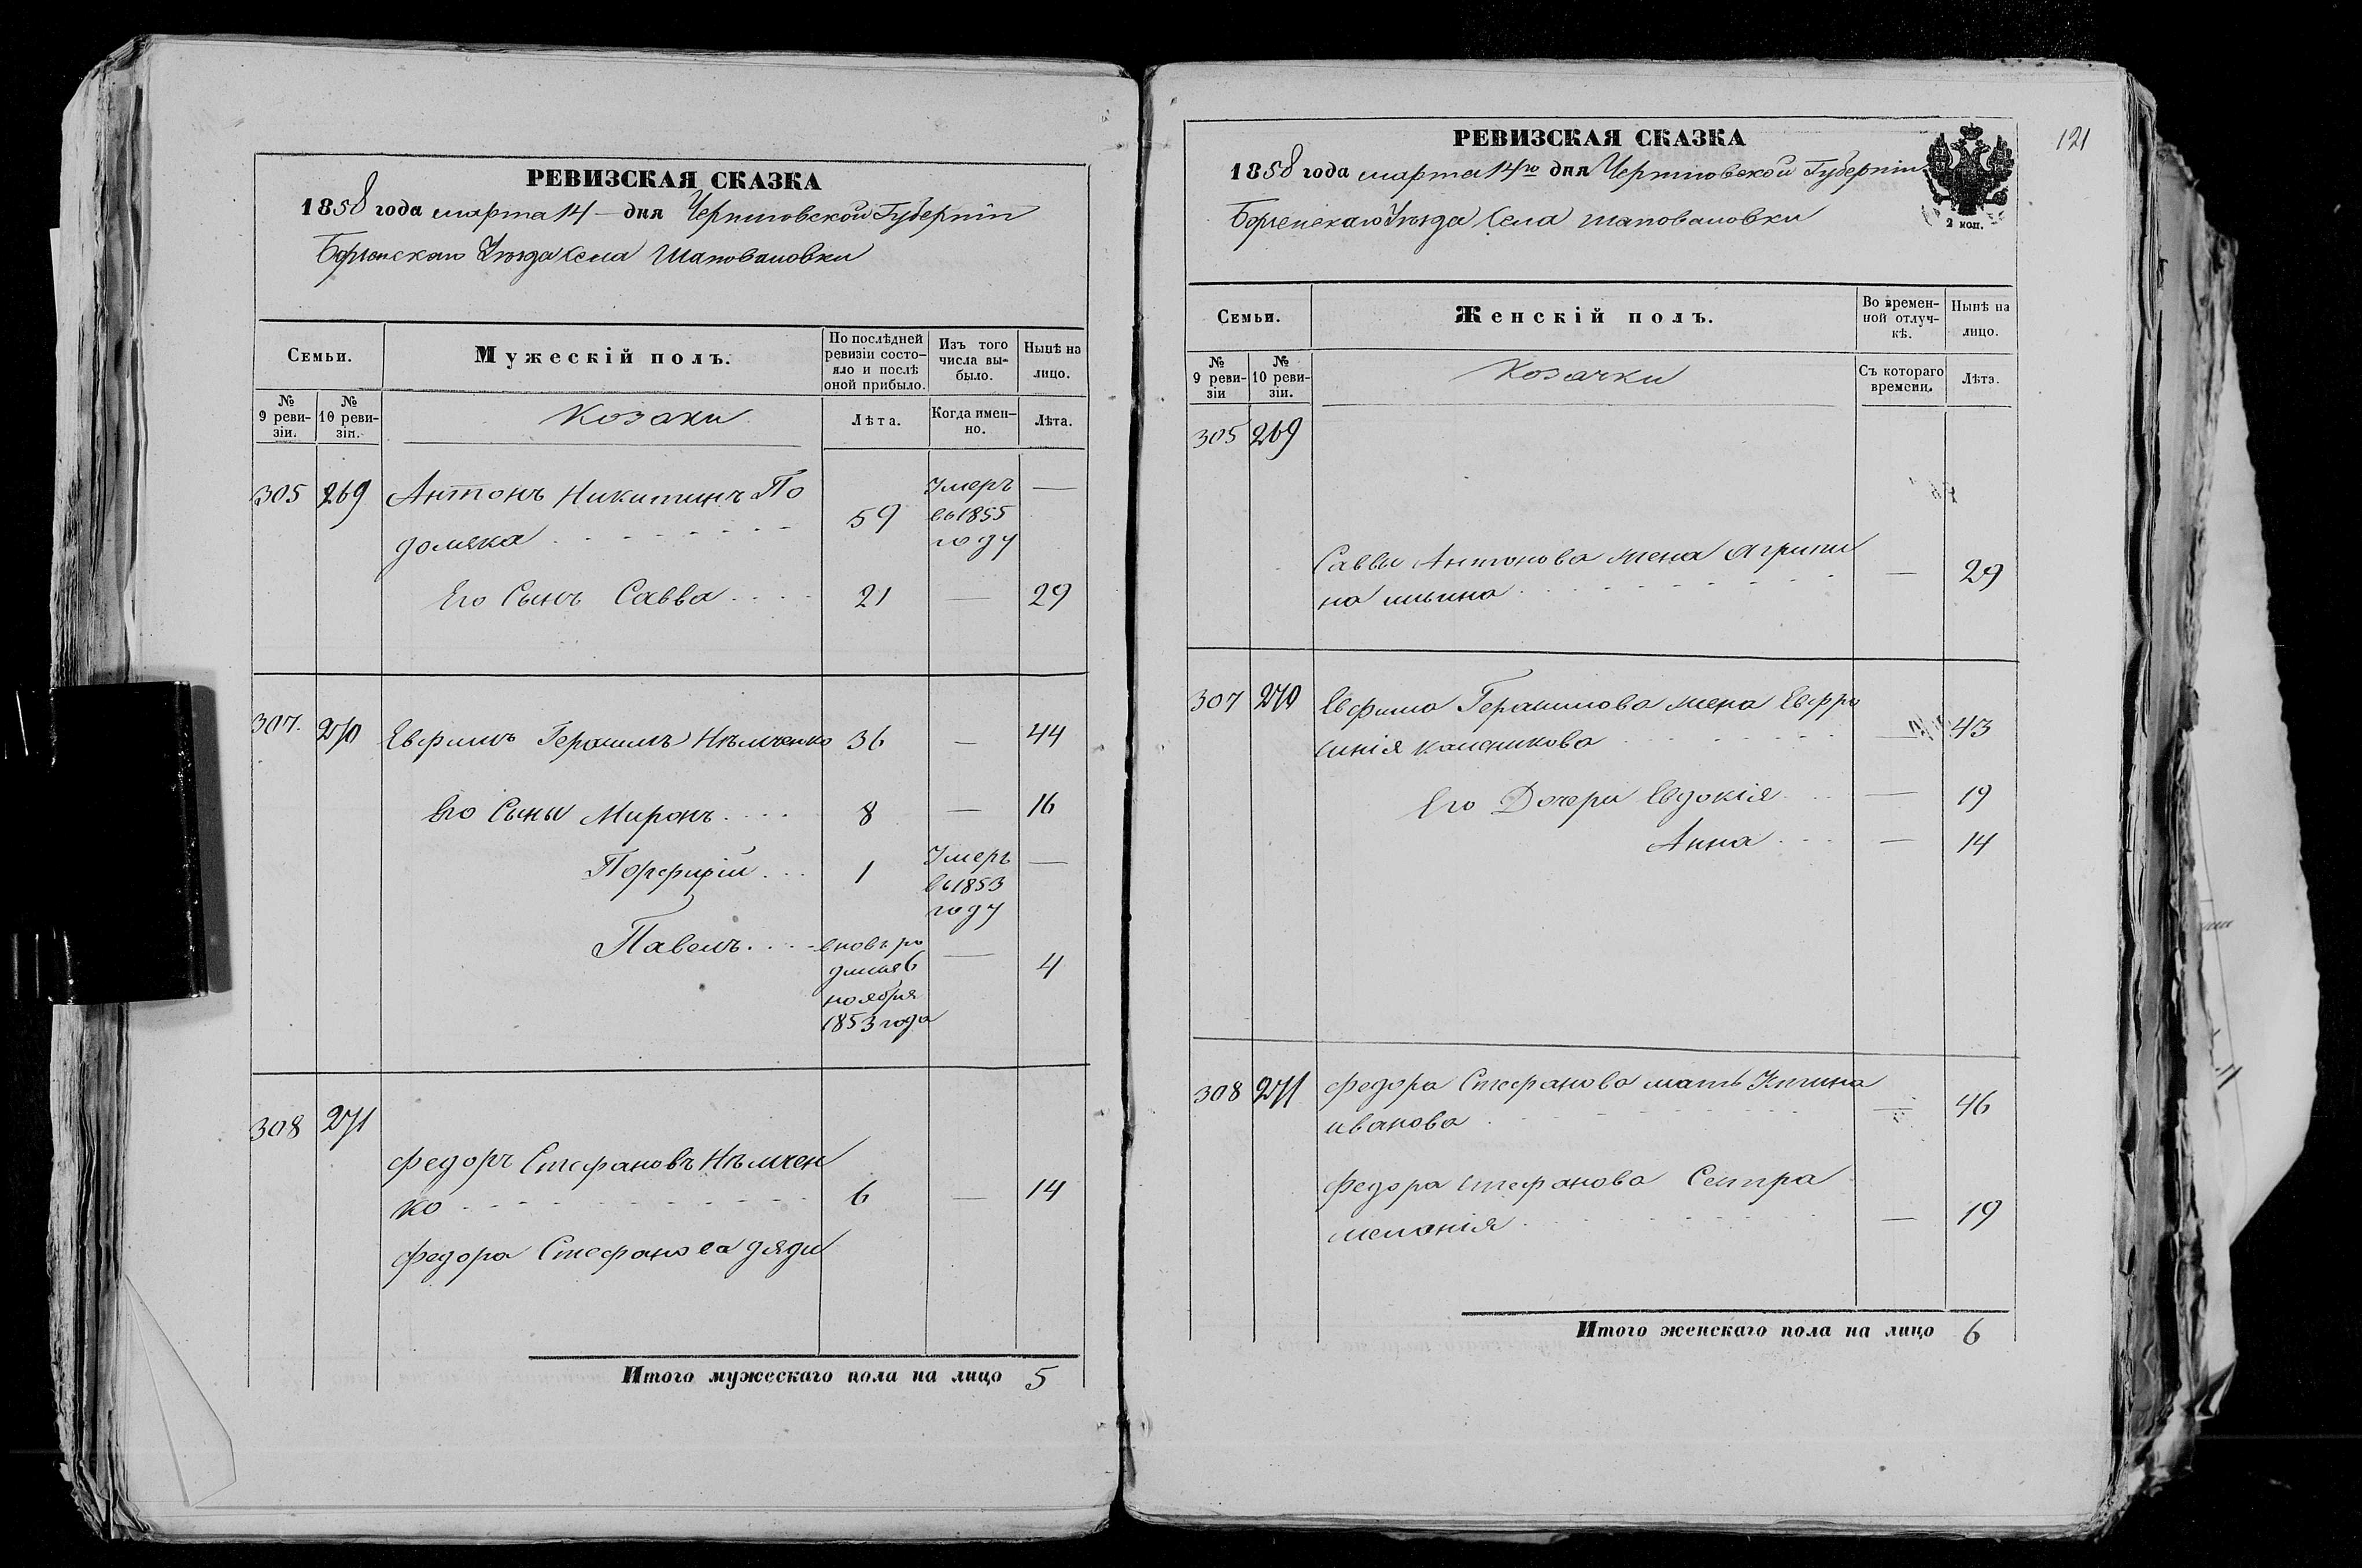 РЕВИЗСКАЯ СКАЗКА
1858 года марта 14 дня Черниговской Губерніи
Борзенскаго Уѣзда Села Шаповаловки
Семьи.
Мужескій полъ.
По послѣдней ревизіи состояло и послѣ оной прибыло.
Изъ того числа выбыло.
Нынѣ на лицо.
№ 9 ревизіи.
№ 10 ревизіи.
Козаки
Лѣта.
Когда именно.
Лѣта.
305 269 Антонъ Никитинъ По
домяка 59 Умеръ въ 1855 году —
Его Сынъ Савва 21 — 29
307. 270 Евфимъ Герасимъ Нѣмченко 36 — 44
Его Сыны Миронъ 8 — 16
Порфирій 1 Умеръ въ 1853 году —
Павелъ вновь ро
дился 6
ноября
1853 года — 4
308 271
Федоръ Стефановъ Нѣмчен
ко 6 — 14
Федора Стефанова дяди
Итого мужескаго пола на лицо 5
121
РЕВИЗСКАЯ СКАЗКА
1858 года марта 14го дня Черниговской Губерніи
Борзенскаго Уѣзда Села Шаповаловки
2 коп.
Семьи.
Женскій полъ.
Во временной отлучкѣ.
Нынѣ на лицо.
№ 9 ревизіи
№ 10 ревизіи.
Козачки
Съ котораго времени.
Лѣта.
305 269
Саввы Антонова жена Агрипи
на ильина — 29
307 270 Евфима Герасимова жена Евфро
синія — 43
Его Дочери Евдокія — 19
Анна — 14
308 271 Федора Стефанова мать
иванова — 46
Федора стефанова Сестра
меланія — 19
Итого женскаго пола на лицо 6